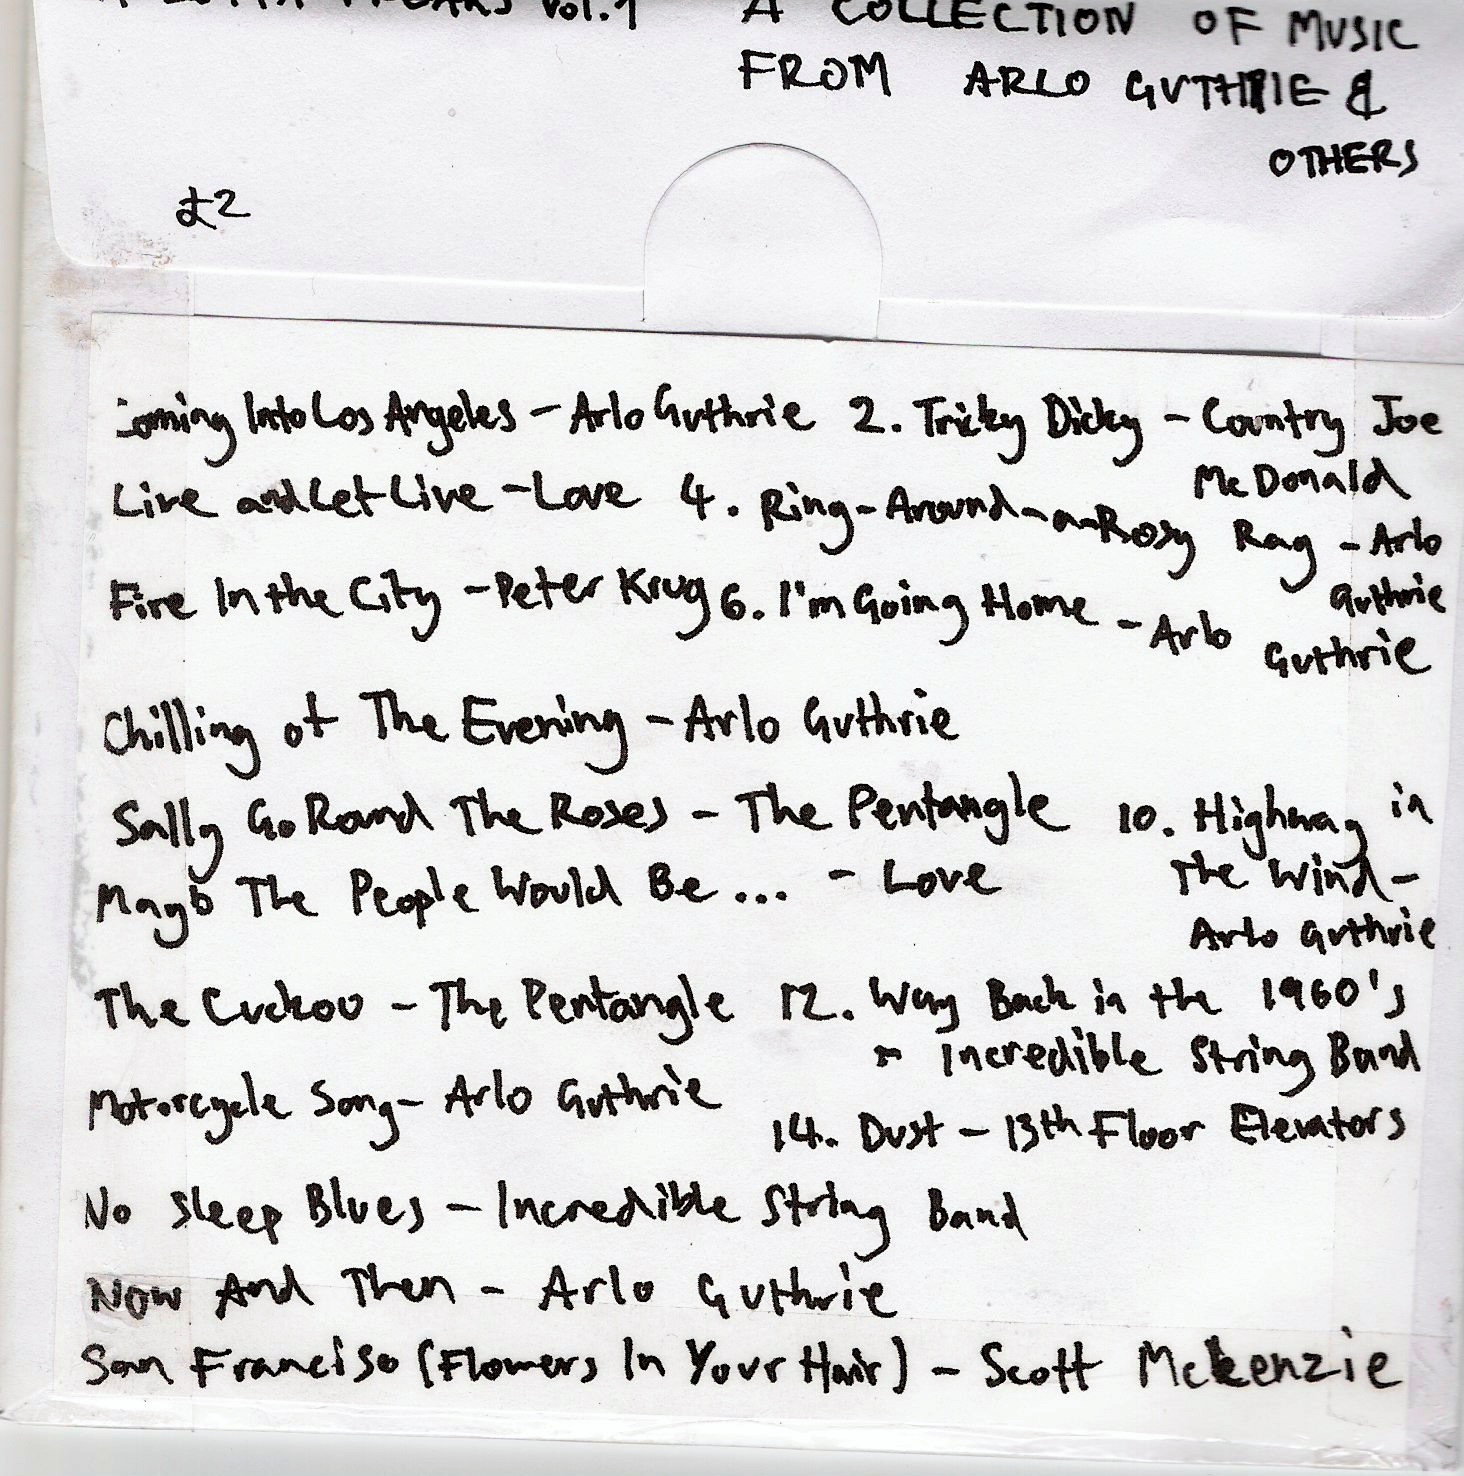 Vol.1 A COLLECTION OF MUSIC
FROM ARLO GUTHRIE &
OTHERS
£2
oming Into Los Angeles - Arlo Guthrie 2. Tricky Dicky - Country Joe
McDonald
Live and Let Live - Love 4. Ring-Around-a-Rosy Rag - Arlo
Guthrie
Fire In the City - Peter Krug 6. I'm Going Home - Arlo
Guthrie
Chilling of The Evening - Arlo Guthrie
Sally Go Round The Roses - The Pentangle 10. Highway in
The Wind -
Arlo Guthrie
Mayb The People Would Be ... - Love
The Cuckoo - The Pentangle 12. Way Back in the 1960's
- Incredible String Band
Motorcycle Song - Arlo Guthrie
14. Dust - 13th Floor Elevators
No Sleep Blues - Incredible String Band
Now And Then - Arlo Guthrie
San Franciso (Flowers In Your Hair) - Scott Mckenzie